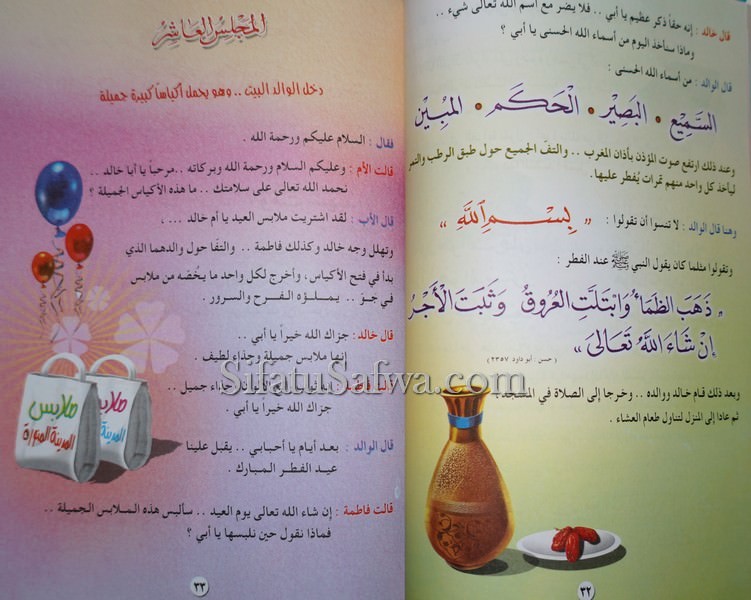 قال خالد : إنه حقاً ذكر عظيم يا أبي .. فلا يضر مع اسم الله تعالى شيء ..
وماذا سنأخذ اليوم من أسماء الله الحسنى يا أبي ؟
قال الوالد : من أسماء الله الحسنى :
السَّمِيْع • البَصِيْر • الْحَكَم • المُبِيْن
وعند ذلك ارتفع صوت المؤذن بأذان المغرب .. والتفّ الجميع حول طبق الرطب والتمر
ليأخذ كل واحد منهم تمرات يُفطر عليها.
وهنا قال الوالد : لا تنسوا أن تقولوا : « بِسْــمِ اللَّهِ »
وتقولوا مثلما كان يقول النبي ﷺ عند الفطر :
« ذَهَبَ الظَّمَأُ وَابْتَلَّتِ العُرُوقُ وَثَبَتَ الأَجْرُ
إِنْ شَاءَ اللَّهُ تَعَالَى »
( حسن : أبو داود ٢٣٥٧ )
وبعد ذلك قـام خـالد ووالده .. وخرجا إلى الصلاة في المسجد
ثم عادا إلى المنزل لتناول طعام العشاء .
٣٢
المَجْلِسُ العَاشِرُ
دخل الوالد البيت .. وهو يحمل أكياساً كبيرة جميلة
فقال : السلام عليكم ورحمة الله .
قالت الأم : وعليكم السلام ورحمة الله وبركاته .. مرحباً يا أبا خالد ..
نحمد الله تعالى على سلامتك .. ما هذه الأكياس الجميلة ؟
قال الأب : لقد اشتريت ملابس العيد يا أم خالد ... ،
وتهلل وجه خالد وكذلك فاطمة .. والتفّا حول والدهما الذي
بدأ في فتح الأكياس، وأخرج لكل واحد ما يخُصه من ملابس
في جـوّ .. يملـؤه الفـرح والسرور .
قال خالد: جزاك الله خيراً يا أبي ..
إنها ملابس جميلة وحذاء لطيف .
قالت فاطمة : جميل ..
جزاك الله خيراً يا أبي .
قال الوالد : بعـد أيام يا أحبابي .. يقبل علينا
عيـد الفطـر المبارك .
قالت فاطمة : إن شاء الله تعالى يوم العيد .. سألبس هذه الملابس الجميلة ..
فماذا نقول حين نلبسها يا أبي ؟
ملابس
المدينة المنورة
ملابس
المدينة
٣٣
SifatuSafwa.com